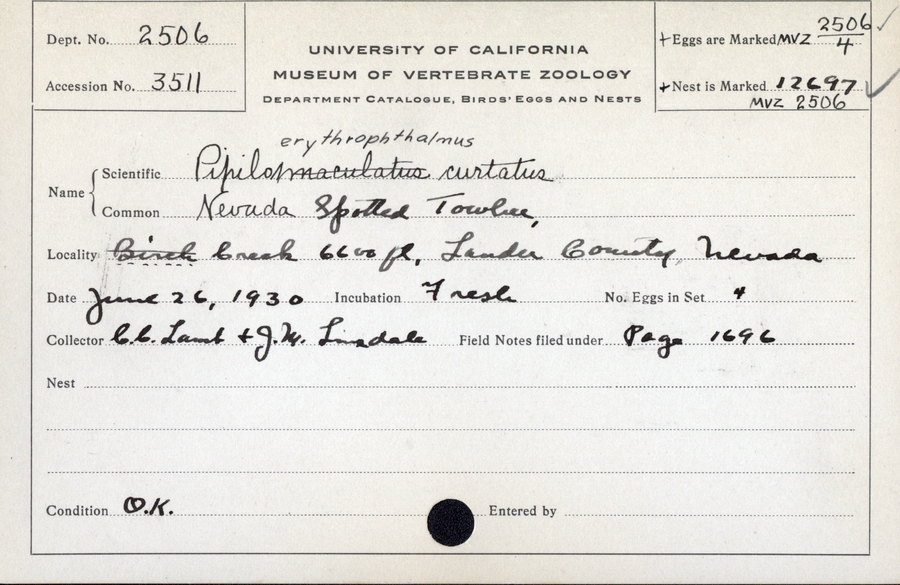 Dept. No. 2506
Accession No. 3511
UNIVERSITY OF CALIFORNIA
MUSEUM OF VERTEBRATE ZOOLOGY
DEPARTMENT CATALOGUE, BIRDS' EGGS AND NESTS
+Eggs are Marked MVZ 2506/4 ✓
+Nest is Marked 12697 ✓
MVZ 2506
erythrophthalmus
Name { Scientific Pipilo maculatus curtatus
Common Nevada Spotted Towhee,
Locality Birch Creek 6600 ft, Lander County, Nevada
Date June 26, 1930 Incubation Fresh No. Eggs in Set 4
Collector C.C. Lamb + J.M. Linsdale Field Notes filed under Page 1696
Nest
Condition O.K. Entered by